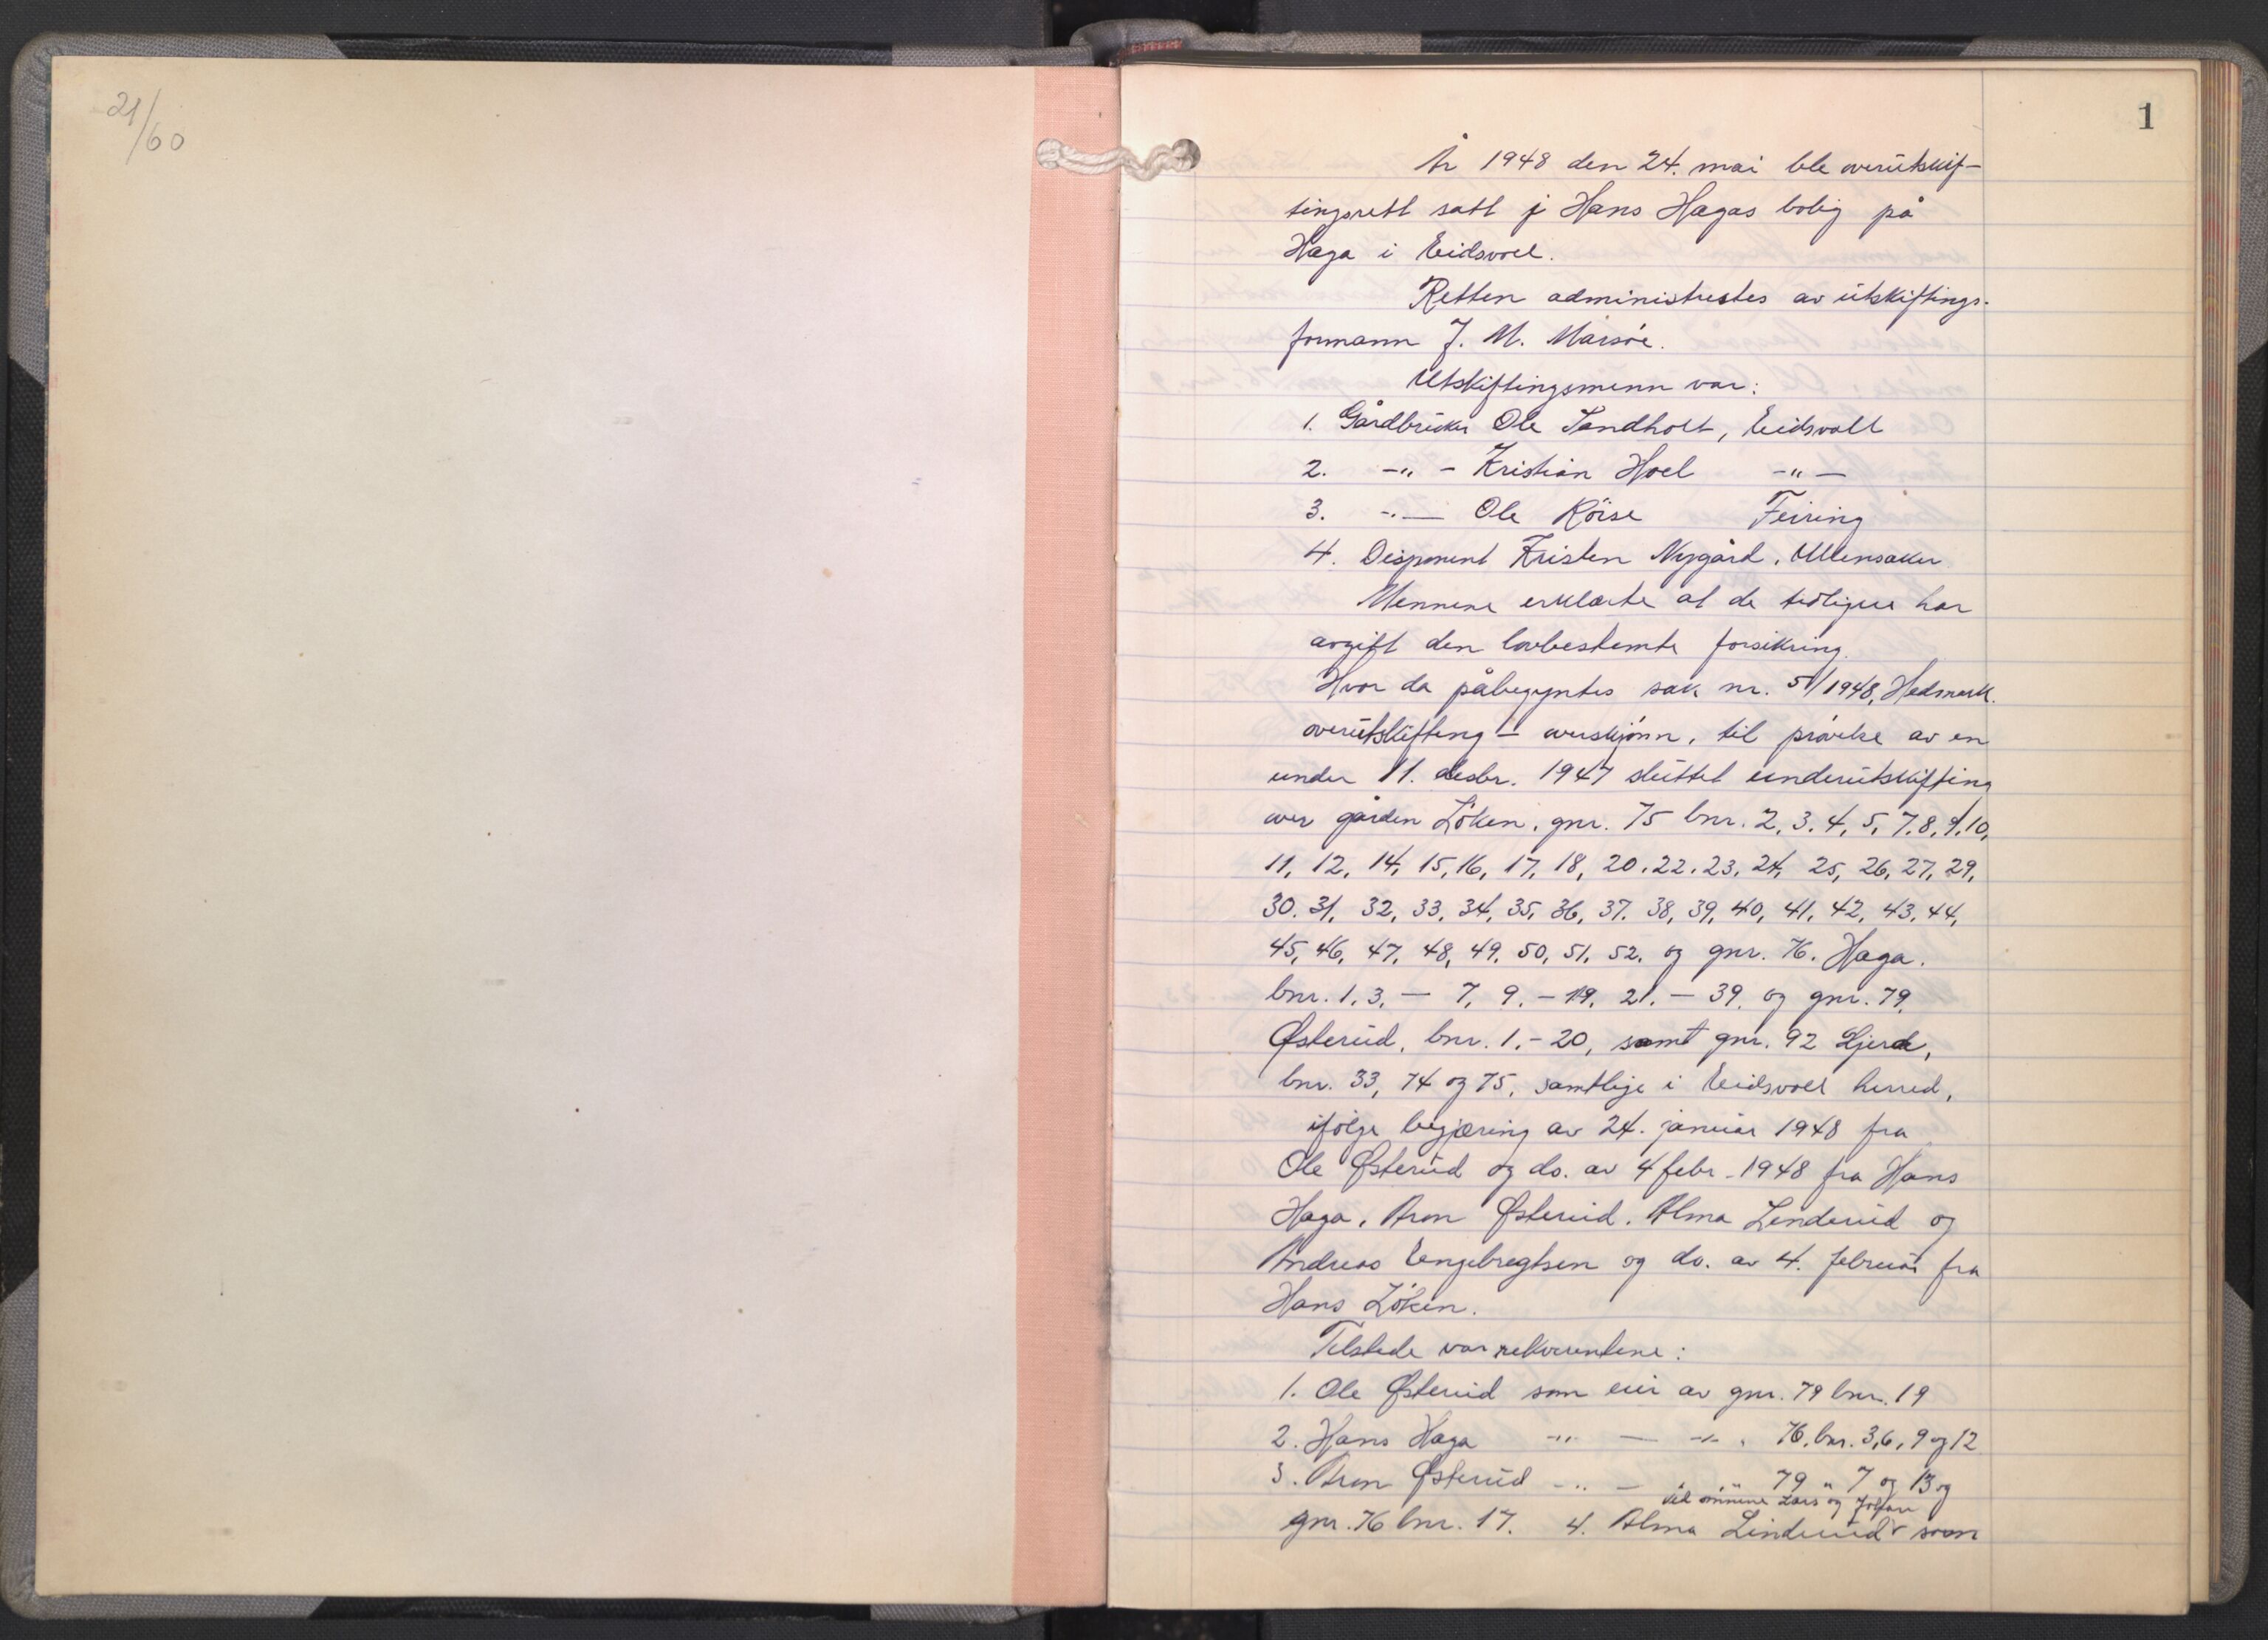 21/60
1
År 1948 den 24. mai ble overutskif-
tingsrett satt i Hans Hagas bolig på
Haga i Eidsvoll.
Retten administrertes av utskiftings-
formann J. M. Marsöe.
Utskiftingsmenn var:
1. Gårdbruker Ole Sandholt, Eidsvoll
2. -"- Kristian Hoel -"-
3. -"- Ole Röise Feiring
4. Disponent Kristen Nygård, Ullensaker
Mennene erklærte at de tidligere har
avgitt den lovbestemte forsikring.
Hvor da påbegyntes sak nr. 5/1948, Hedmark
overutskifting – overskjønn, til prøvelse av en
under 11. desbr. 1947 sluttet underutskifting
over gården Löken, gnr. 75 bnr. 2, 3, 4, 5, 7, 8, 9, 10,
11, 12, 14, 15, 16, 17, 18, 20, 22, 23, 24, 25, 26, 27, 29,
30, 31, 32, 33, 34, 35, 36, 37, 38, 39, 40, 41, 42, 43, 44,
45, 46, 47, 48, 49, 50, 51, 52, og gnr. 76. Haga.
bnr. 1, 3, – 7, 9, – 19, 21, – 39, og gnr. 79,
Østerud, bnr. 1, – 20, samt gnr. 92 Gjerde,
bnr. 33, 74 og 75, samtlige i Eidsvoll herred,
ifölge begjæring av 24. januar 1948 fra
Ole Østerud og do. av 4 febr. 1948 fra Hans
Haga, Aron Østerud, Alma Linderud og
Andreas Engebregtsen og do. av 4. februar fra
Hans Löken.
Tilstede var rekvirentene:
1. Ole Østerud som eier av gnr. 79 bnr. 19
2. Hans Haga -"- — -"- 76, bnr. 3, 6, 9 og 12
3. Aron Østerud -"- — " 79 " 7 og 13 og
ved sønnene Lars og Johan
gnr. 76 bnr. 17. 4. Alma Linderud som